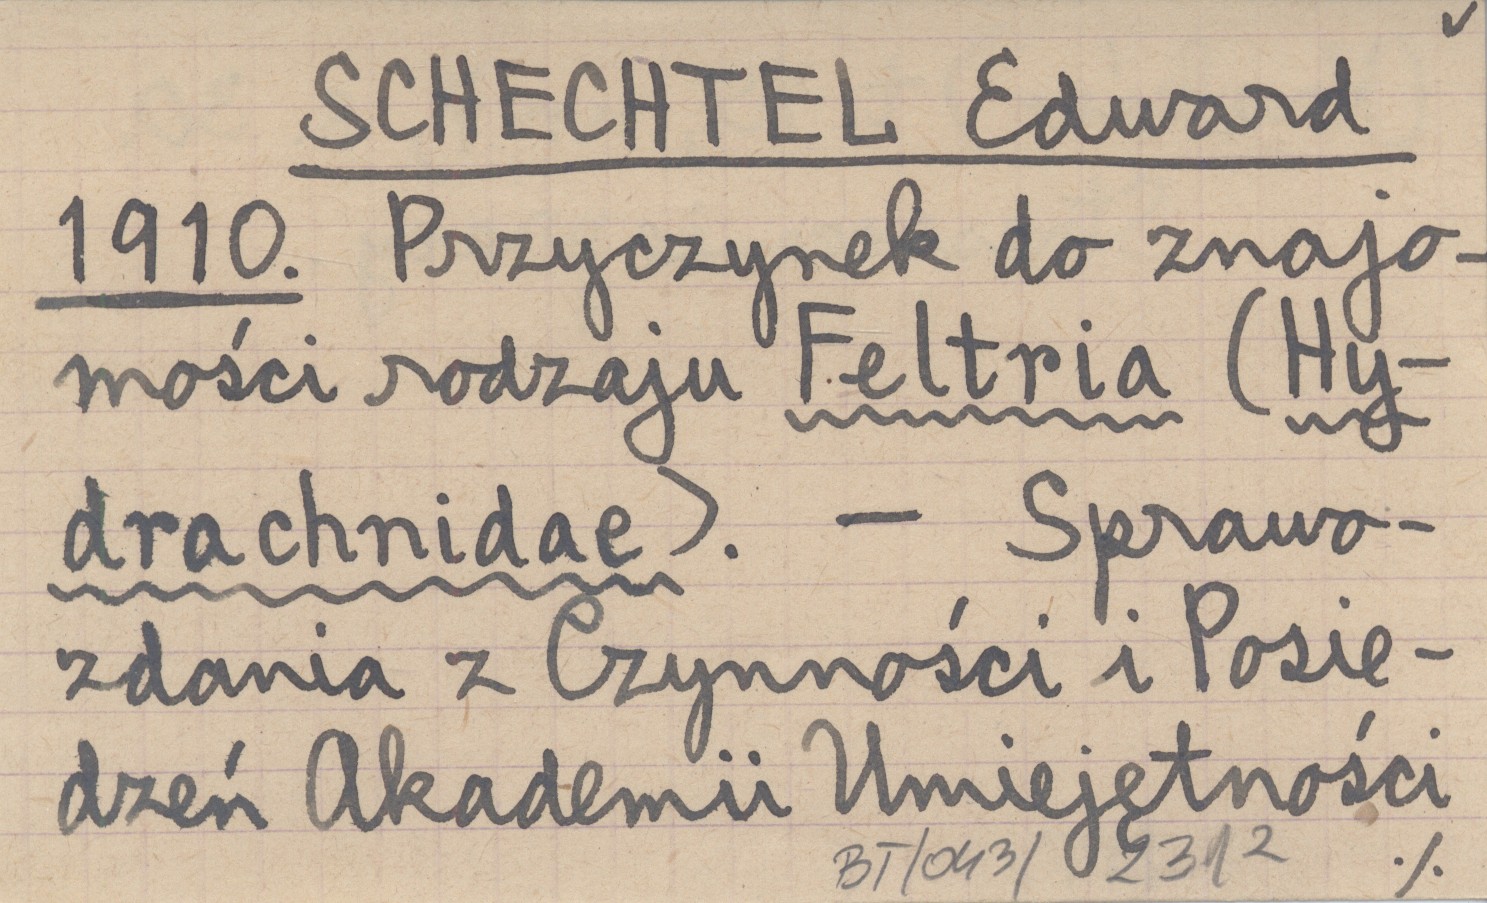 ✓
SCHECHTEL Edward
1910. Przyczynek do znajo-
mości rodzaju Feltria (Hy-
drachnidae). — Sprawo-
zdania z Czynności i Posie-
dzeń Akademii Umiejętności
BT/043/ 2312 ./.